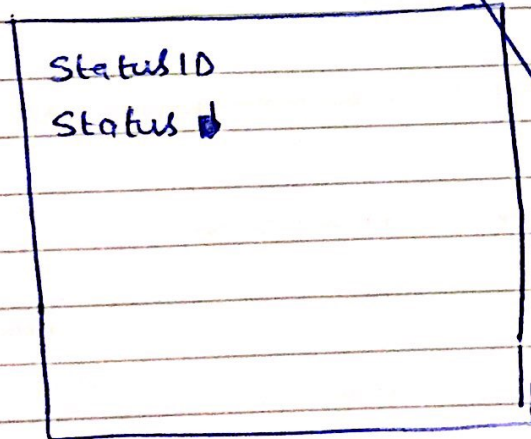 StatusID
Status